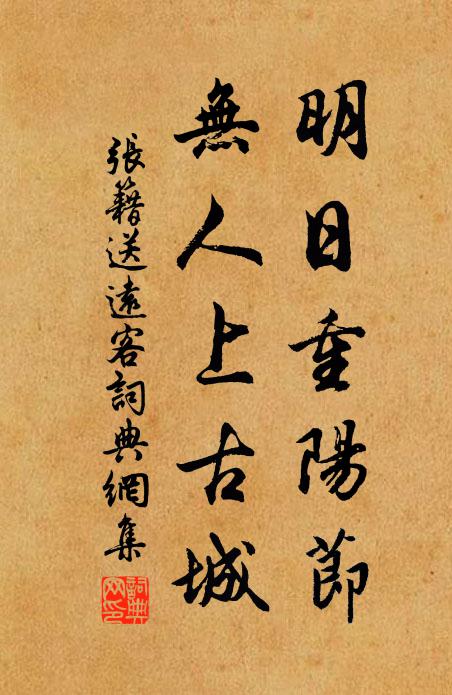 明日重陽節
無人上古城
張籍送遠客詞典網集
詞典網印